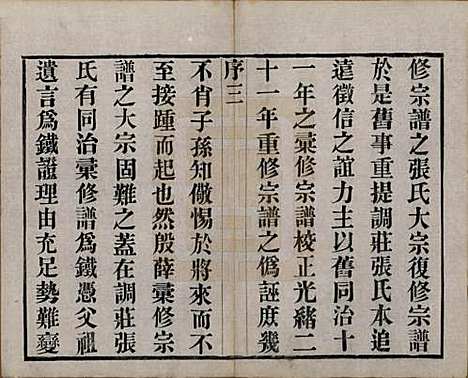 修宗譜之張氏大宗復修宗譜
於是舊事重提調莊張氏本追
遠徵信之誼力主以舊同治十
一年之稾修宗譜校正光緒二
十一年重修宗譜之僞誣庶幾
序三
不肖子孫知儆惕於將來而不
至接踵而起也然殷薛稾修宗
譜之大宗固難之蓋在調莊張
氏有同治稾修譜爲鐵憑父祖
遺言爲鐵證理由充足勢難變